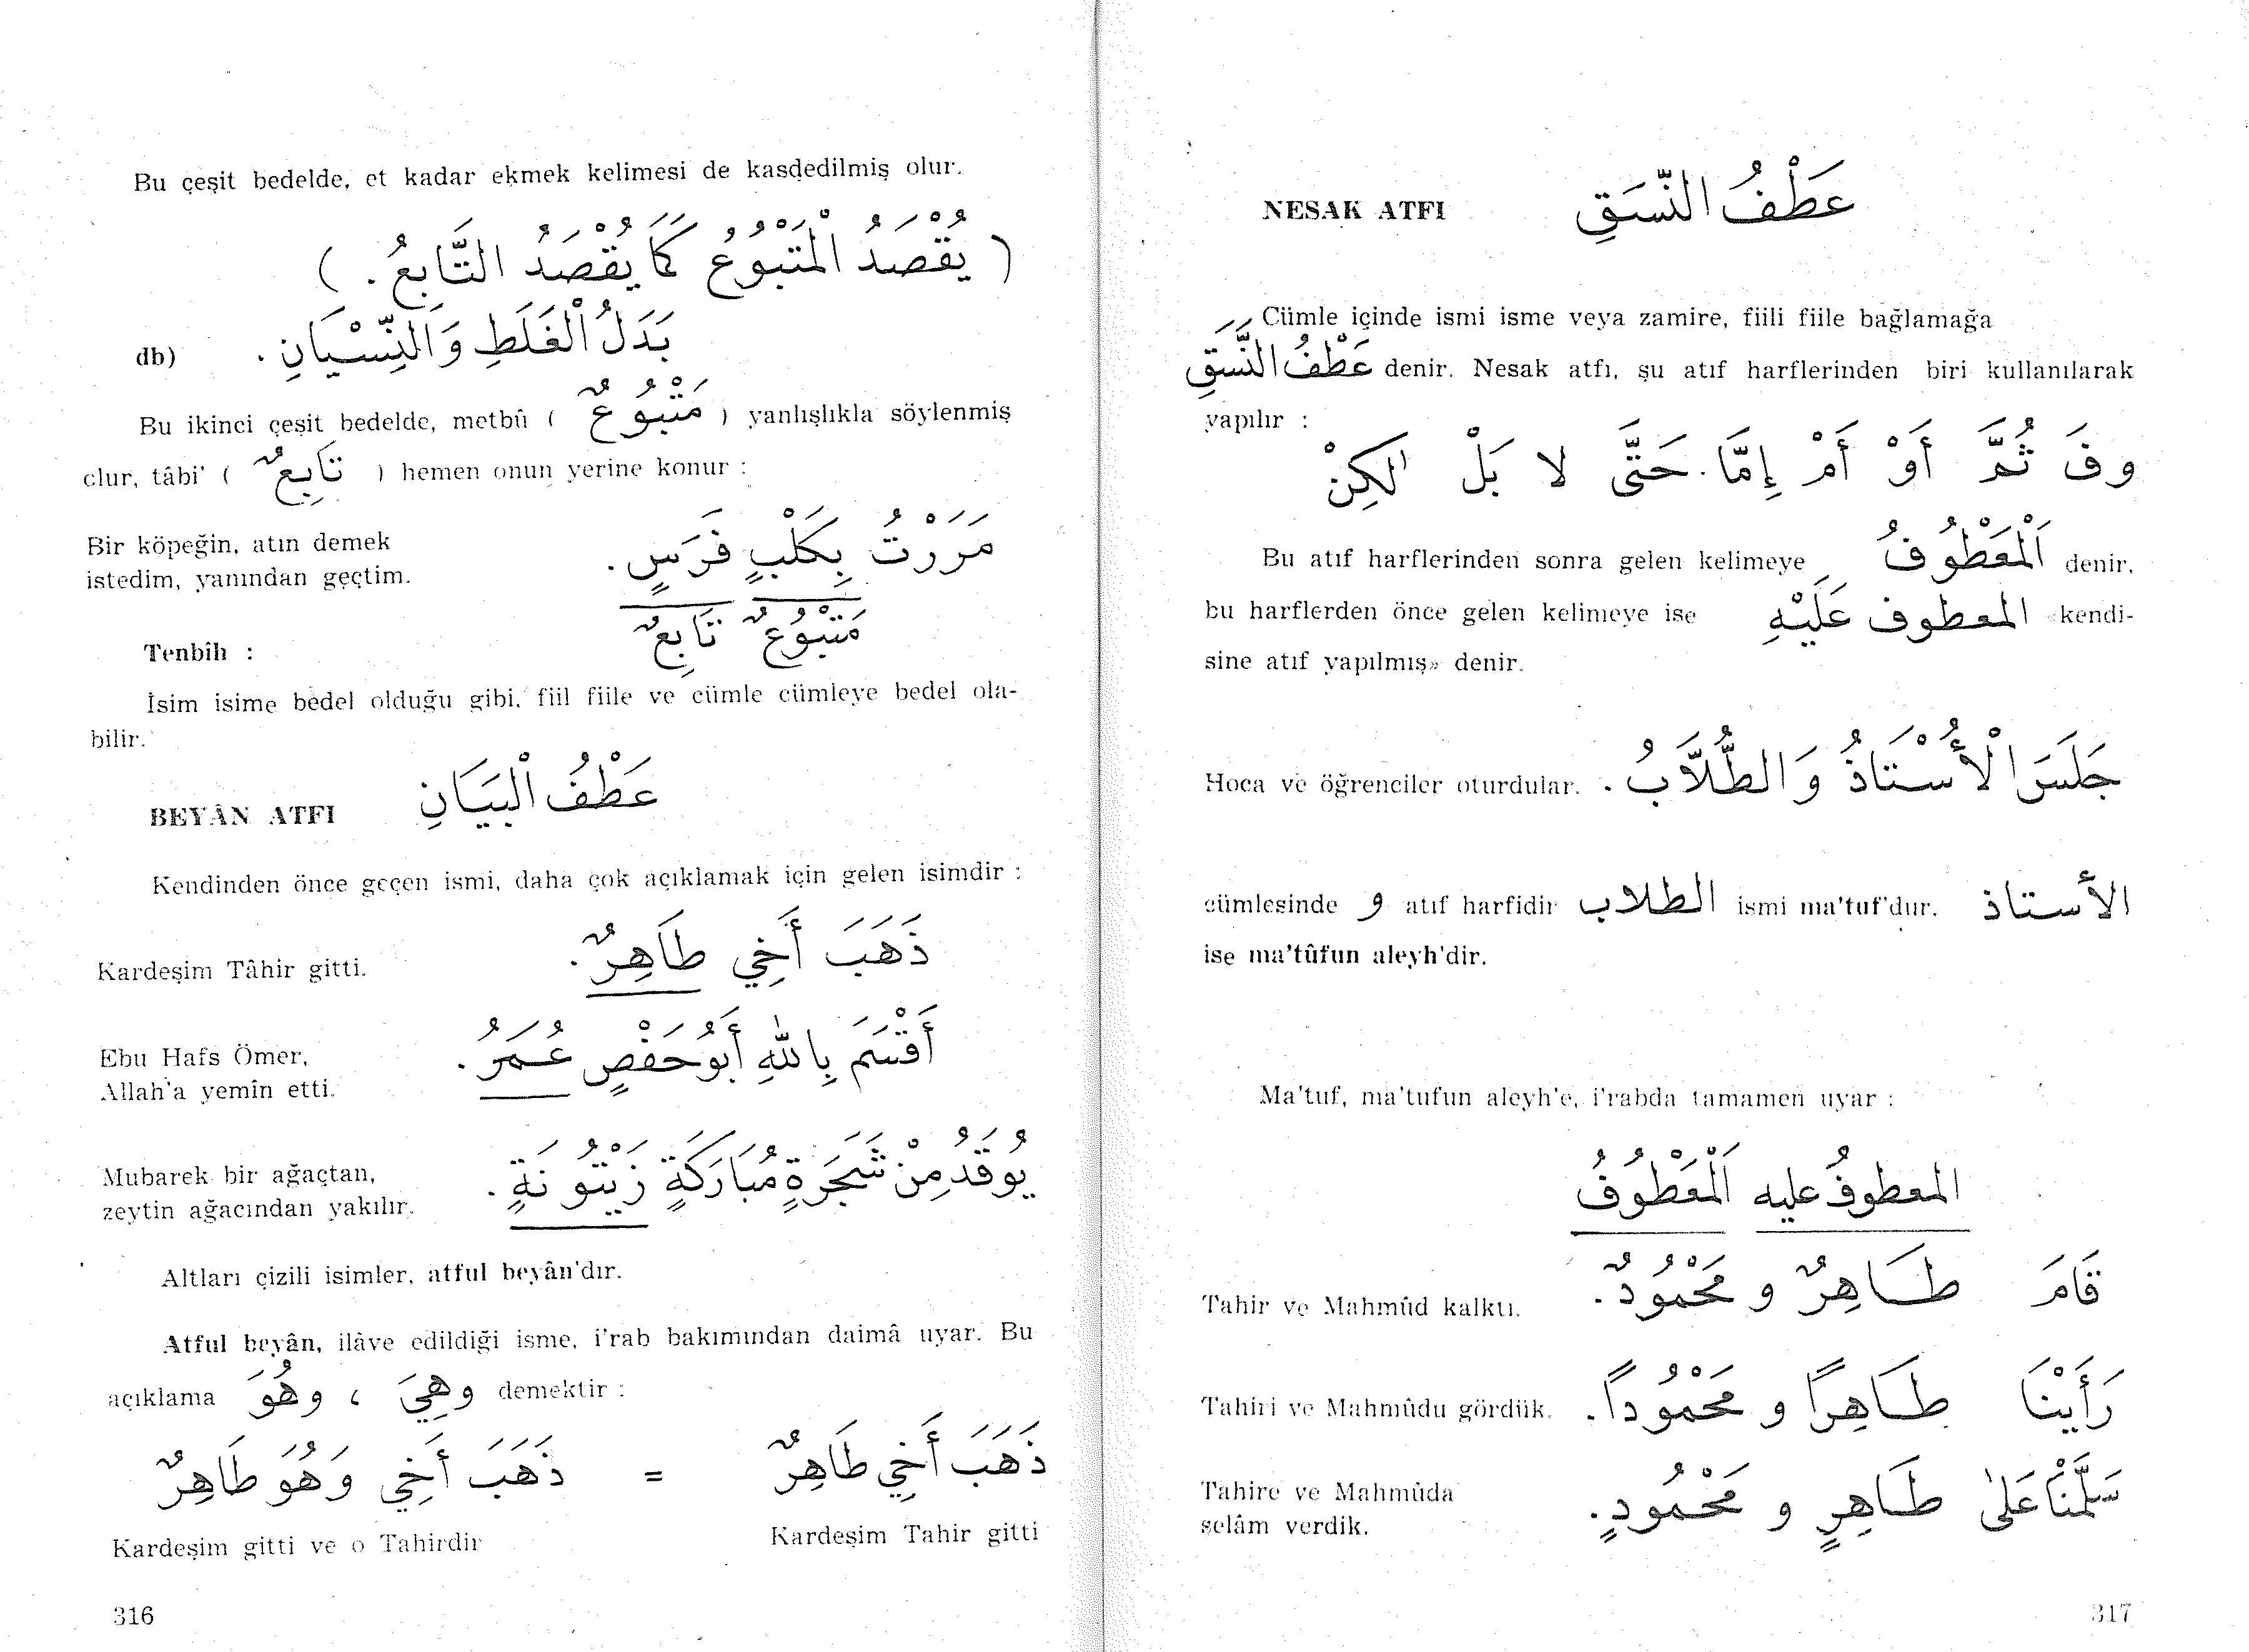 Bu çeşit bedelde, et kadar ekmek kelimesi de kasdedilmiş olur.
( يُقْصَدُ الْمَتْبُوُعُ كَمَا يُقْصَدُ التَّابِعُ . )
db) بَدَلُ الْغَلَطِ وَالنِّسْيَانِ .
Bu ikinci çeşit bedelde, metbû ( مَتْبُوُعٌ ) yanlışlıkla söylenmiş
olur, tâbi' ( تَابِعٌ ) hemen onun yerine konur :
Bir köpeğin, atın demek مَرَرْتُ بِكَلْبٍ فَرَسٍ .
istedim, yanından geçtim.
مَتْبُوُعٌ تَابِعٌ
Tenbîh :
İsim isime bedel olduğu gibi, fiil fiile ve cümle cümleye bedel ola-
bilir.
BEYÂN ATFI عَطْفُ الْبَيَانِ
Kendinden önce geçen ismi, daha çok açıklamak için gelen isimdir :
Kardeşim Tâhir gitti. ذَهَبَ أَخِي طَاهِرٌ .
Ebu Hafs Ömer, أَقْسَمَ بِاللهِ أَبُوحَفْصٍ عُمَرُ .
Allah'a yemîn etti.
Mubarek bir ağaçtan, يُوقَدُ مِنْ شَجَرَةٍ مُبَارَكَةٍ زَيْتُونَةٍ .
zeytin ağacından yakılır.
Altları çizili isimler, atful beyân'dır.
Atful beyân, ilâve edildiği isme, i'rab bakımından daimâ uyar. Bu
açıklama وهُوَ ، وهِيَ demektir :
ذَهَبَ أَخِي طَاهِرٌ = ذَهَبَ أَخِي وَهُوَ طَاهِرٌ
Kardeşim gitti ve o Tahirdir Kardeşim Tahir gitti
316
NESAK ATFI عَطْفُ النَّسَقِ
Cümle içinde ismi isme veya zamire, fiili fiile bağlamağa
عَطْفُ النَّسَقِ denir. Nesak atfı, şu atıf harflerinden biri kullanılarak
yapılır :
و فَ ثُمَّ أَوْ أَمْ إِمَّا . حَتَّى لا بَلْ لكِنْ
Bu atıf harflerinden sonra gelen kelimeye اَلْمَعْطُوُفُ denir,
bu harflerden önce gelen kelimeye ise المعطوف عَلَيْهِ «kendi-
sine atıf yapılmış» denir.
Hoca ve öğrenciler oturdular. جَلَسَ الْأُسْتَاذُ وَالطُّلَّابُ .
cümlesinde و atıf harfidir الطلاب ismi ma'tuf'dur. الأستاذ
ise ma'tûfun aleyh'dir.
Ma'tuf, ma'tufun aleyh'e, i'rabda tamamen uyar :
المعطوفُ عليه اَلْمَعْطُوُفُ
Tahir ve Mahmûd kalktı. قَامَ طَاهِرٌ و مَحْمُودٌ .
Tahiri ve Mahmûdu gördük. رَأَيْنَا طَاهِرًا و مَحْمُودًا .
Tahire ve Mahmûda سَلَّمْنَا عَلىٰ طَاهِرٍ و مَحْمُودٍ .
selâm verdik.
317